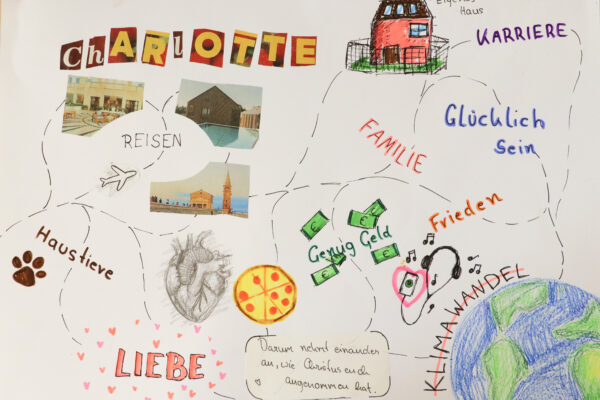 Eigenes
Haus
CHARLOTTE
KARRIERE
REISEN
FAMILIE
Glücklich
Sein
Haustiere
Genug Geld
Frieden
KLIMAWANDEL
LIEBE
Darum nehmt einander
an, wie Christus euch
angenommen hat.